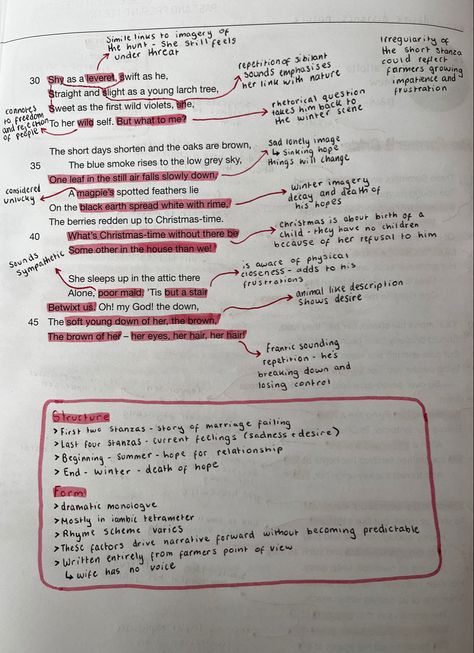 Simile links to imagery of
the hunt - she still feels
under threat
repetition of sibilant
sounds emphasises
her link with nature
Irregularity of
the short stanza
could reflect
farmers growing
impatience and
frustration
30 Shy as a leveret, swift as he,
Straight and slight as a young larch tree,
Sweet as the first wild violets, she,
To her wild self. But what to me?
connotes
to freedom
and rejection
of people
rhetorical question
takes him back to
the winter scene
The short days shorten and the oaks are brown,
35 The blue smoke rises to the low grey sky,
One leaf in the still air falls slowly down,
A magpie's spotted feathers lie
On the black earth spread white with rime,
The berries redden up to Christmas-time.
40 What's Christmas-time without there be
Some other in the house than we!
sad lonely image
↳ sinking hope
things will change
considered
unlucky
winter imagery
decay and death of
his hopes
christmas is about birth of a
child - they have no children
because of her refusal to him
sounds
sympathetic
She sleeps up in the attic there
Alone, poor maid. 'Tis but a stair
Betwixt us. Oh! my God! the down,
45 The soft young down of her, the brown,
The brown of her – her eyes, her hair, her hair!
is aware of physical
closeness - adds to his
frustrations
animal like description
shows desire
frantic sounding
repetition - he's
breaking down and
losing control
Structure
> First two stanzas - story of marriage failing
> Last four stanzas - current feelings (sadness + desire)
> Beginning - summer - hope for relationship
> End - winter - death of hope
Form
> dramatic monologue
> Mostly in iambic tetrameter
> Rhyme scheme varies
> These factors drive narrative forward without becoming predictable
> Written entirely from farmers point of view
↳ wife has no voice